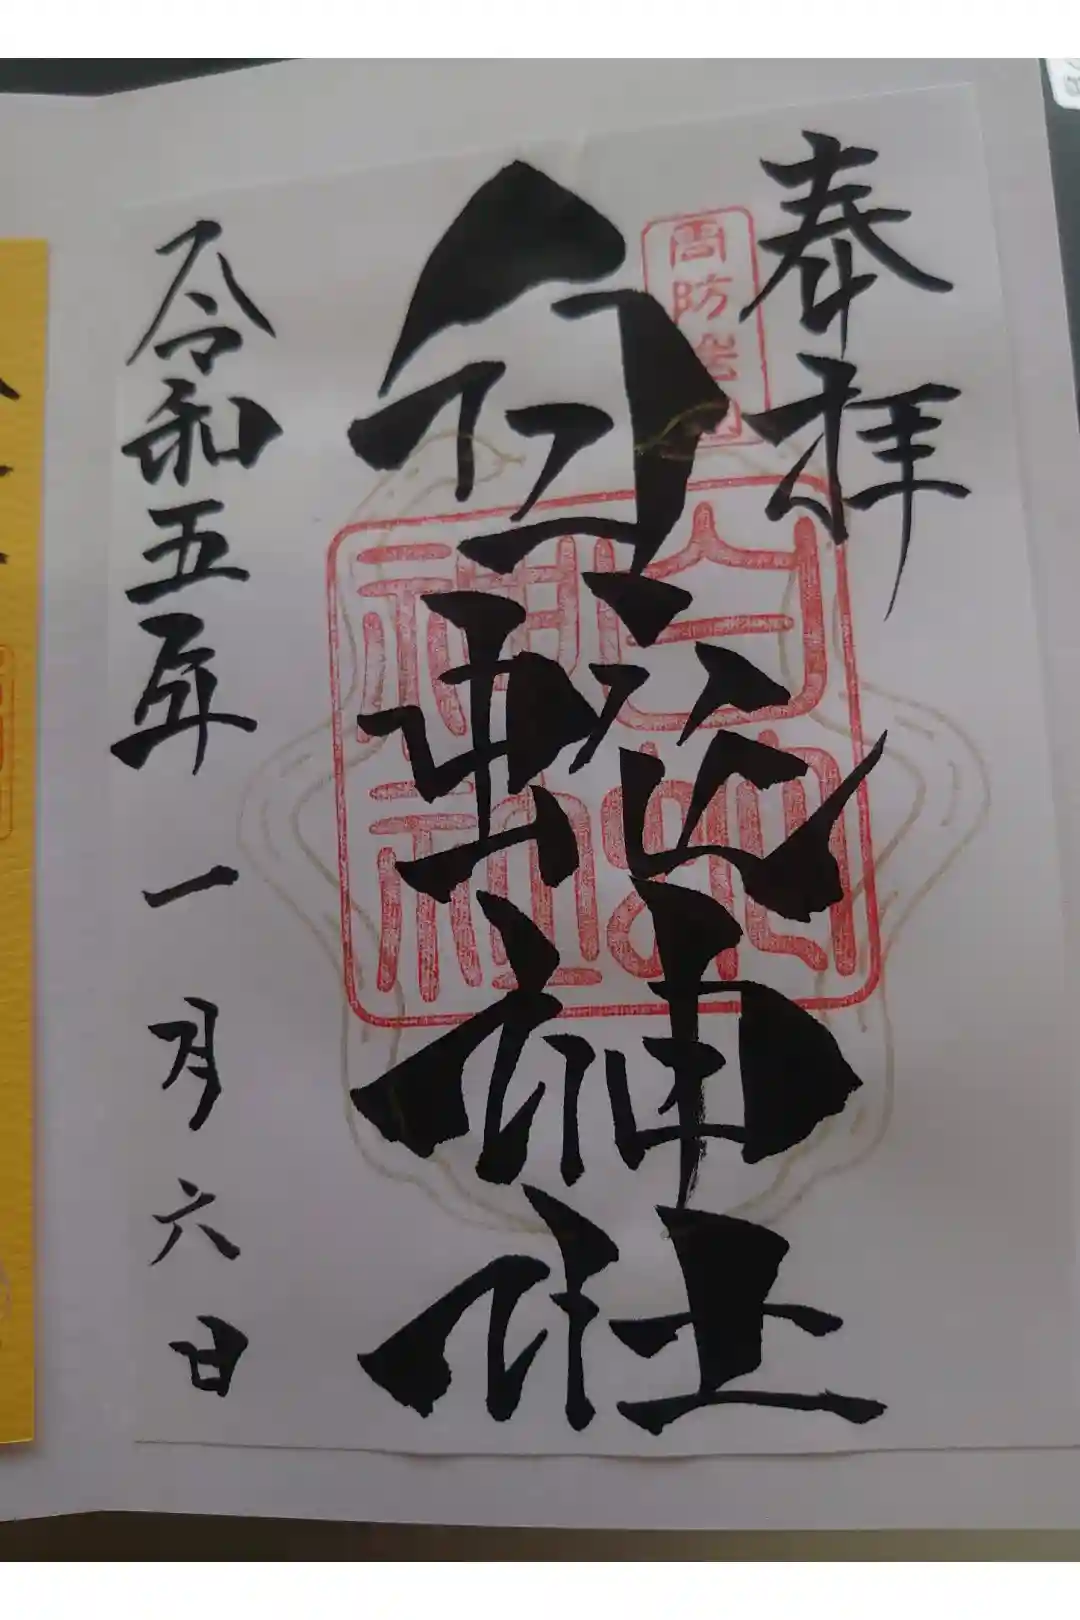 奉拝
周防岩国
白蛇神社
白蛇神社
令和五年一月六日